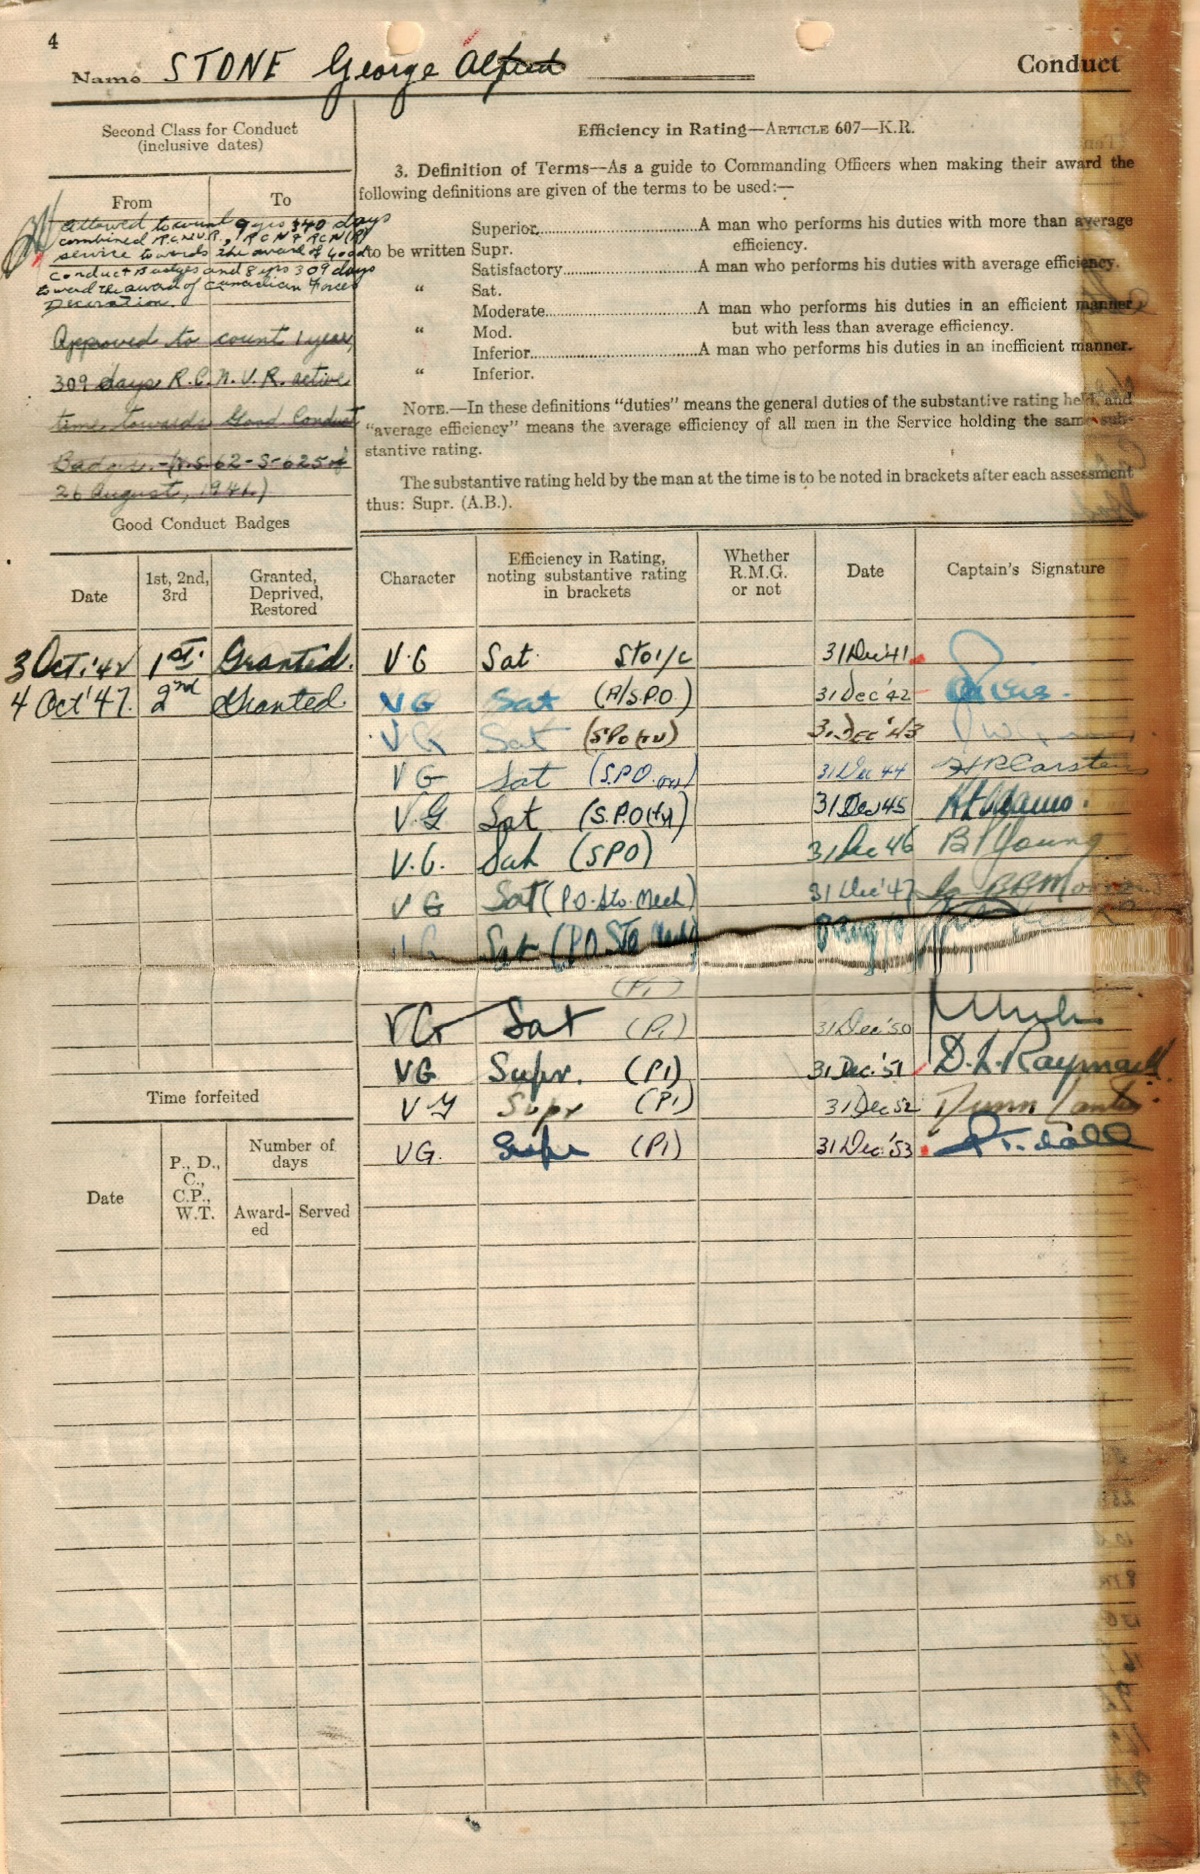 4
Name STONE George Alfred
Conduct
Second Class for Conduct
(inclusive dates)
From To
Allowed to count 9 yrs 340 days
combined R.C.N.V.R., RCN & RCN(R)
service towards the award of Good
Conduct Badges and 8 yrs 309 days
toward the award of Canadian Forces
Decoration.
Approved to count 1 year,
309 days R.C.N.V.R. active
time towards Good Conduct
Badge. -(N.S. 62-S-625 of
26 August, 1941.)
Good Conduct Badges
Date 1st, 2nd, 3rd Granted, Deprived, Restored
3 Oct. '42 1st. Granted.
4 Oct '47. 2nd Granted.
Time forfeited
Date P., D., C., C.P., W.T. Number of days
Award-ed Served
Efficiency in Rating—Article 607—K.R.
3. Definition of Terms—As a guide to Commanding Officers when making their award the
following definitions are given of the terms to be used:—
Superior A man who performs his duties with more than average
to be written Supr. efficiency.
Satisfactory A man who performs his duties with average efficiency.
" Sat.
Moderate A man who performs his duties in an efficient manner,
" Mod. but with less than average efficiency.
Inferior A man who performs his duties in an inefficient manner.
" Inferior.
NOTE.—In these definitions "duties" means the general duties of the substantive rating held, and
"average efficiency" means the average efficiency of all men in the Service holding the same sub-
stantive rating.
The substantive rating held by the man at the time is to be noted in brackets after each assessment
thus: Supr. (A.B.).
Character Efficiency in Rating, noting substantive rating in brackets Whether R.M.G. or not Date Captain's Signature
V.G Sat. Sto 1/c 31 Dec '41
VG Sat (A/S.P.O) 31 Dec '42
VG Sat (SPO (TY)) 31 Dec '43
VG Sat (S.P.O. (TY)) 31 Dec 44
V.G Sat (S.P.O (TY)) 31 Dec '45 Adams.
V.G. Sat (SPO) 31 Dec 46 B Young
VG Sat (P.O. Sto. Mech) 31 Dec '47
VG Sat (P.O. Sto Mech)
(P1)
VG Sat (P1) 31 Dec '50
VG Supr. (P1) 31 Dec. '51 D. L. Raymond
VG Supr (P1) 31 Dec 52 Dunn Lantier
VG. Supr (P1) 31 Dec. '53